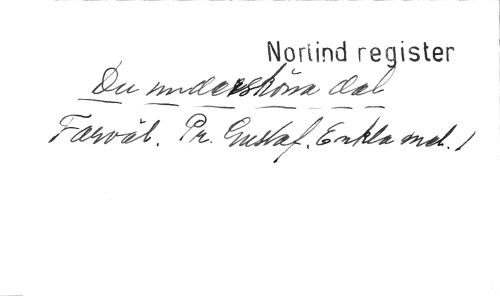 Norlind register
Du undersköna dal
Farväl. Pr. Gustaf. Enkla mel. 1